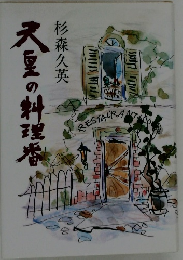 天皇の料理番
杉森久英
RESTAURA